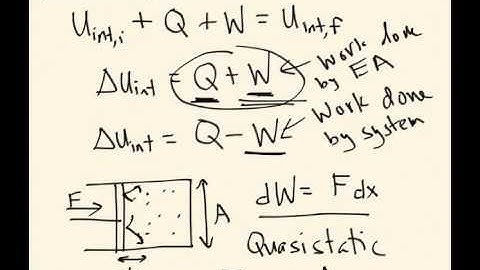 U_int,i + Q + W = U_int,f
ΔU_int = Q + W
Work done by EA
ΔU_int = Q - W
Work done by system
F
A
dW = F dx
Quasistatic